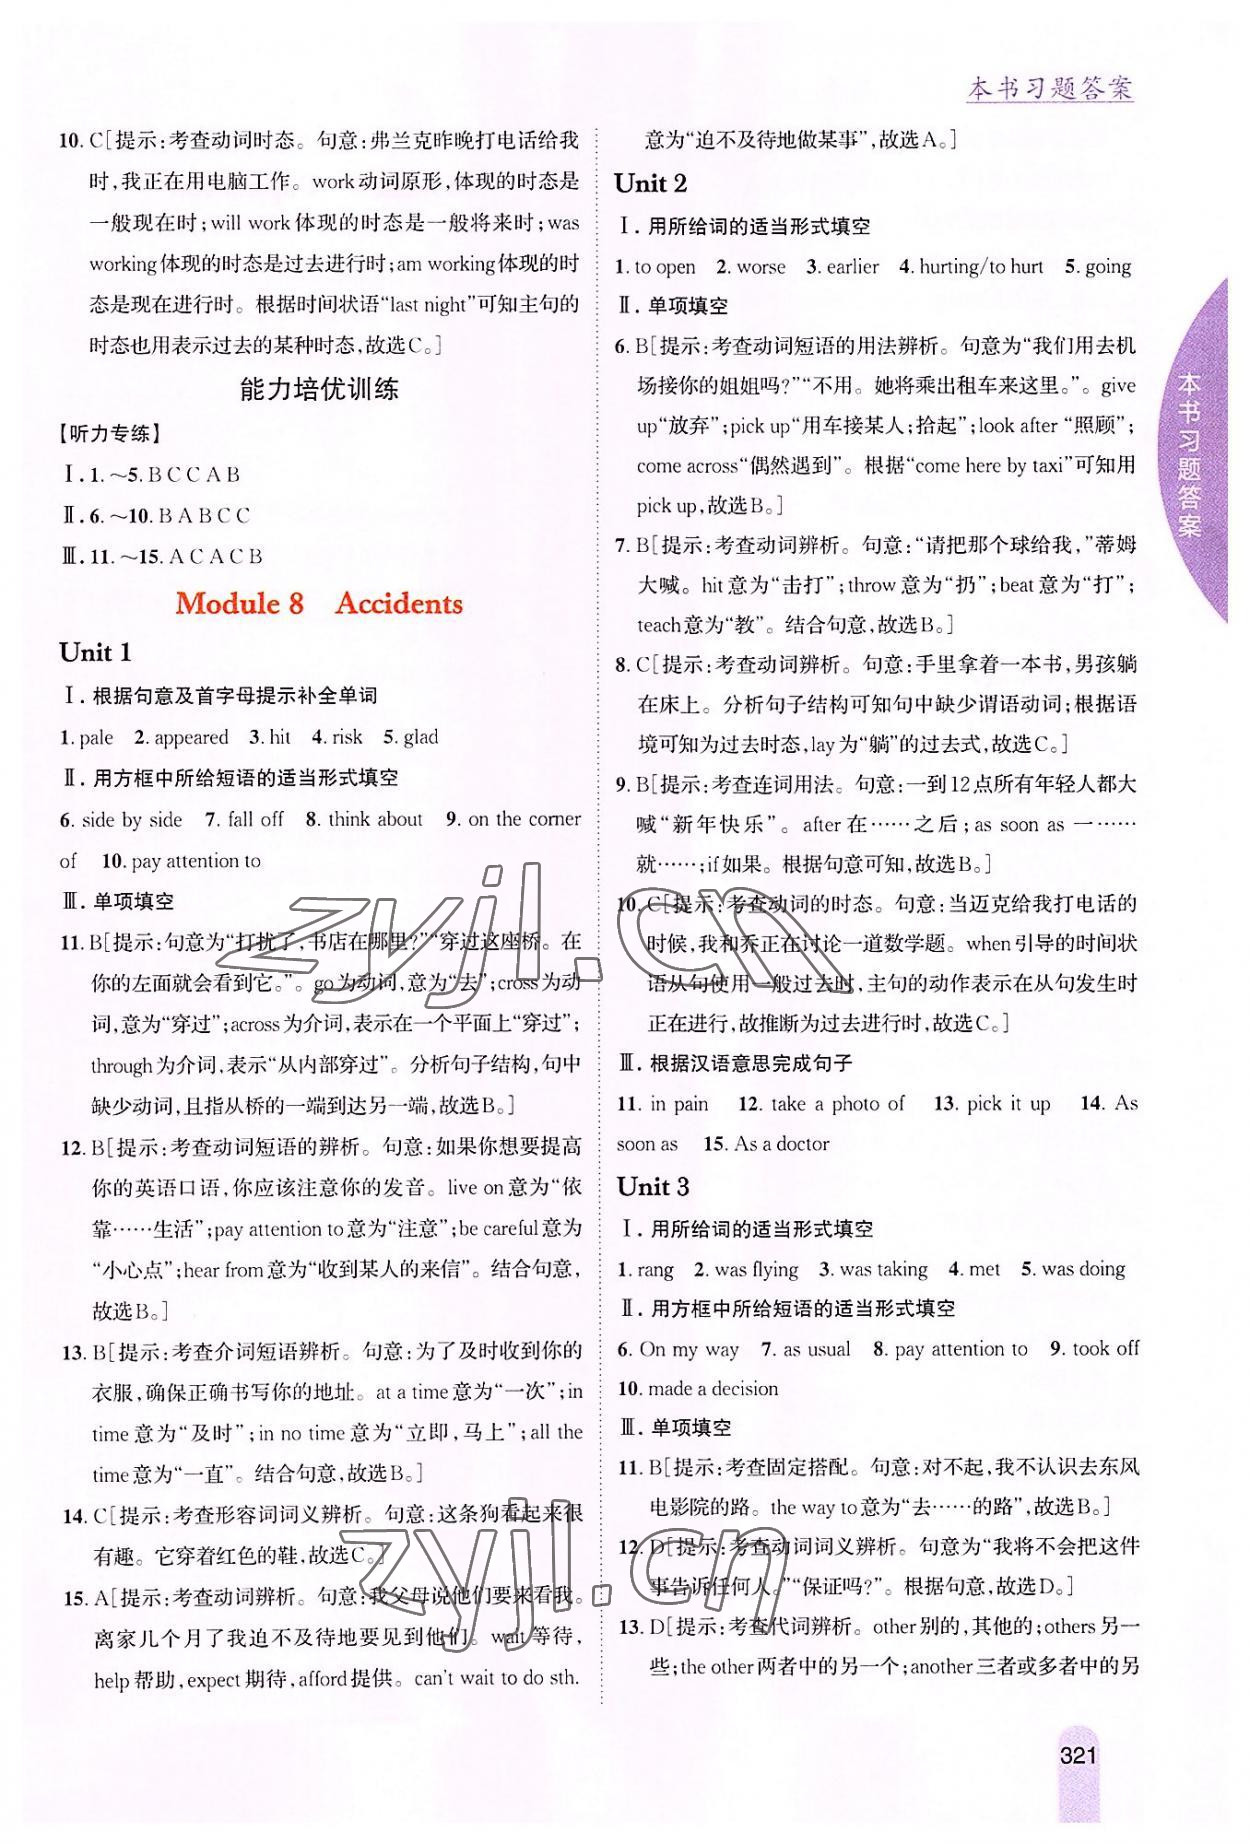 本书习题答案
10. C[提示:考查动词时态。句意:弗兰克昨晚打电话给我
时,我正在用电脑工作。work动词原形,体现的时态是
一般现在时;will work体现的时态是一般将来时;was
working体现的时态是过去进行时;am working体现的时
态是现在进行时。根据时间状语“last night”可知主句的
时态也用表示过去的某种时态,故选C。]
能力培优训练
【听力专练】
Ⅰ. 1. ~5. B C C A B
Ⅱ. 6. ~10. B A B C C
Ⅲ. 11. ~15. A C A C B
Module 8 Accidents
Unit 1
Ⅰ. 根据句意及首字母提示补全单词
1. pale 2. appeared 3. hit 4. risk 5. glad
Ⅱ. 用方框中所给短语的适当形式填空
6. side by side 7. fall off 8. think about 9. on the corner
of 10. pay attention to
Ⅲ. 单项填空
11. B[提示:句意为“打扰了,书店在哪里?”“穿过这座桥。在
你的左面就会看到它。”。go为动词,意为“去”;cross为动
词,意为“穿过”;across为介词,表示在一个平面上“穿过”;
through为介词,表示“从内部穿过”。分析句子结构,句中
缺少动词,且指从桥的一端到达另一端,故选B。]
12. B[提示:考查动词短语的辨析。句意:如果你想要提高
你的英语口语,你应该注意你的发音。live on意为“依
靠……生活”;pay attention to意为“注意”;be careful意为
“小心点”;hear from意为“收到某人的来信”。结合句意,
故选B。]
13. B[提示:考查介词短语辨析。句意:为了及时收到你的
衣服,确保正确书写你的地址。at a time意为“一次”;in
time意为“及时”;in no time意为“立即,马上”;all the
time意为“一直”。结合句意,故选B。]
14. C[提示:考查形容词词义辨析。句意:这条狗看起来很
有趣。它穿着红色的鞋,故选C。]
15. A[提示:考查动词辨析。句意:我父母说他们要来看我。
离家几个月了我迫不及待地要见到他们。wait等待,
help帮助,expect期待,afford提供。can't wait to do sth.
意为“迫不及待地做某事”,故选A。]
Unit 2
Ⅰ. 用所给词的适当形式填空
1. to open 2. worse 3. earlier 4. hurting/to hurt 5. going
Ⅱ. 单项填空
6. B[提示:考查动词短语的用法辨析。句意为“我们用去机
场接你的姐姐吗?”“不用。她将乘出租车来这里。”。give
up“放弃”;pick up“用车接某人;拾起”;look after“照顾”;
come across“偶然遇到”。根据“come here by taxi”可知用
pick up,故选B。]
7. B[提示:考查动词辨析。句意:“请把那个球给我,”蒂姆
大喊。hit意为“击打”;throw意为“扔”;beat意为“打”;
teach意为“教”。结合句意,故选B。]
8. C[提示:考查动词辨析。句意:手里拿着一本书,男孩躺
在床上。分析句子结构可知句中缺少谓语动词;根据语
境可知为过去时态,lay为“躺”的过去式,故选C。]
9. B[提示:考查连词用法。句意:一到12点所有年轻人都大
喊“新年快乐”。after在……之后;as soon as一……
就……;if如果。根据句意可知,故选B。]
10. C[提示:考查动词的时态。句意:当迈克给我打电话的
时候,我和乔正在讨论一道数学题。when引导的时间状
语从句使用一般过去时,主句的动作表示在从句发生时
正在进行,故推断为过去进行时,故选C。]
Ⅲ. 根据汉语意思完成句子
11. in pain 12. take a photo of 13. pick it up 14. As
soon as 15. As a doctor
Unit 3
Ⅰ. 用所给词的适当形式填空
1. rang 2. was flying 3. was taking 4. met 5. was doing
Ⅱ. 用方框中所给短语的适当形式填空
6. On my way 7. as usual 8. pay attention to 9. took off
10. made a decision
Ⅲ. 单项填空
11. B[提示:考查固定搭配。句意:对不起,我不认识去东风
电影院的路。the way to意为“去……的路”,故选B。]
12. D[提示:考查动词词义辨析。句意为“我将不会把这件
事告诉任何人。”“保证吗?”。根据句意,故选D。]
13. D[提示:考查代词辨析。other别的,其他的;others另一
些;the other两者中的另一个;another三者或多者中的另
本书习题答案
321
zyjl.cn
zyjl.cn